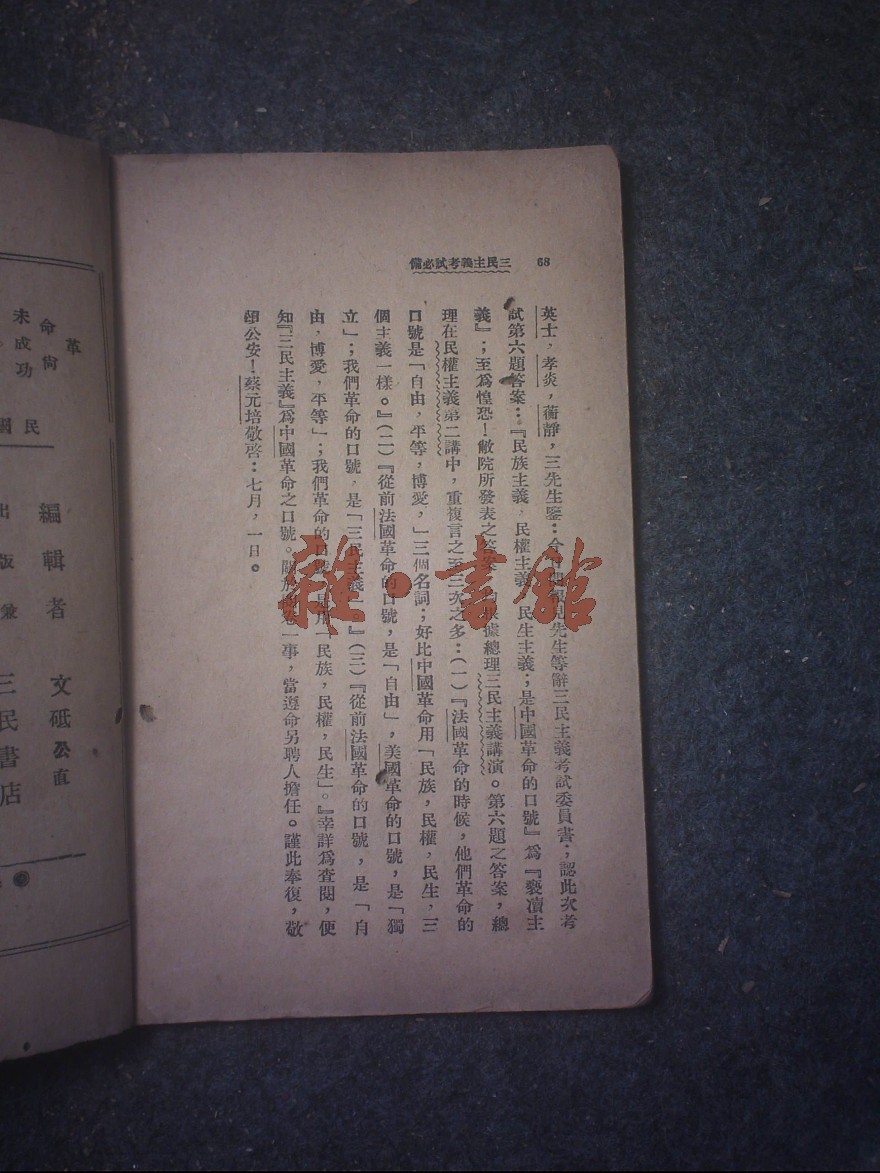 68
三民主義考試必備
英士，孝炎，蘅靜，三先生鑒：今先生等辭三民主義考試委員書；認此次考
試第六題答案：『民族主義，民權主義，民生主義；是中國革命的口號』爲『褻瀆主
義』；至爲惶恐！敝院所發表之答案，根據總理三民主義講演。第六題之答案，總
理在民權主義第二講中，重複言之至三次之多：（一）『法國革命的時候，他們革命的
口號是「自由，平等，博愛，」三個名詞；好比中國革命用「民族，民權，民生，三
個主義一樣。』（二）『從前法國革命的口號，是「自由」，美國革命的口號，是「獨
立」；我們革命的口號，是「三民主義」。』（三）『從前法國革命的口號，是「自
由，博愛，平等」；我們革命的口號，是用「民族，民權，民生」。』幸詳爲查閱，便
知『三民主義』爲中國革命之口號。關於閱卷一事，當遵命另聘人擔任。謹此奉復，敬
頌公安！蔡元培敬啓：七月，一日。
革命尚
未成功
民國
編輯者 文砥 公直
出版兼 三民書店
雜·書館